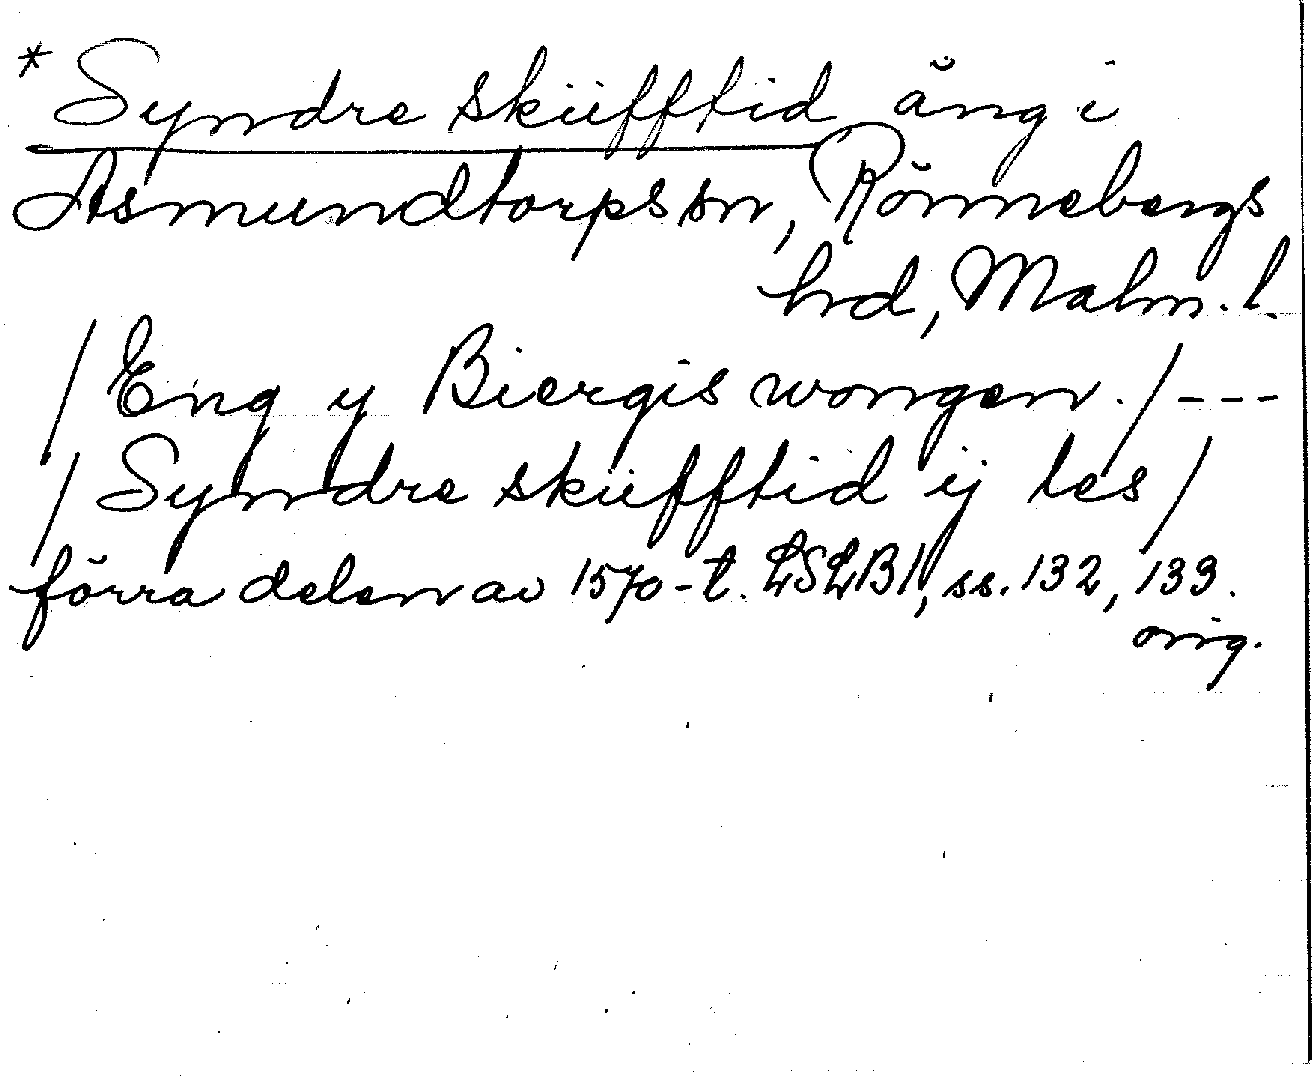 * Syndre skiifftid äng i
Asmundtorps sn, Rönnebergs
hrd, Malm. l.
/ Eng y Biergis wongen. / ---
/ Syndre skiifftid ij les /
förra delen av 1570-t. LSLB1, ss. 132, 133.
orig.